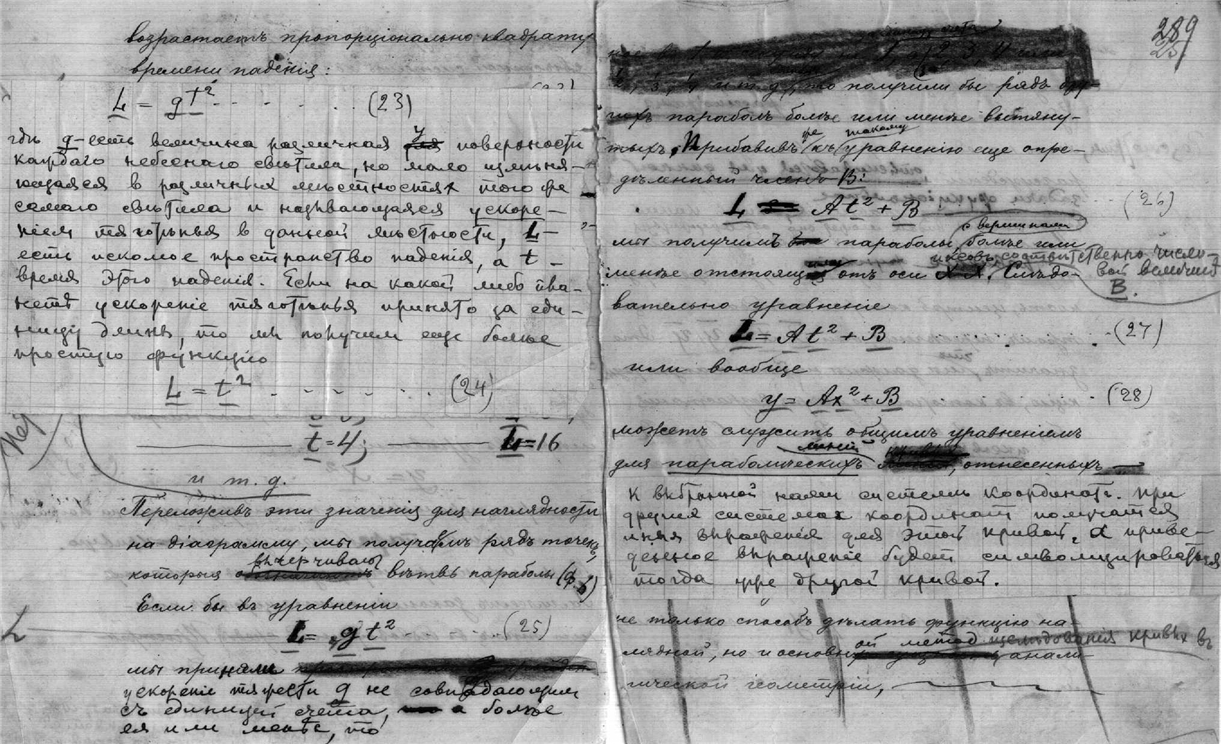 возрастаетъ пропорціонально квадрату
времени паденія:
L = gt² - - - - - - (23)
гдѣ g-есть величина различная у поверхности
каждаго небеснаго свѣтила, но мало измѣня-
ющаяся в различных мѣстностях того же
самаго свѣтила и называющаяся ускоре-
ніем тяготѣнья в данной мѣстности, L-
есть искомое пространство паденія, а t-
время этого паденія. Если на какой либо пла-
нетѣ ускореніе тяготѣнья принято за еди-
ницу длины, то мы получим еще болѣе
простую функцію
L = t² - - - - - (24)
t=4; L=16
и т. д.
Переложивъ эти значенія для наглядности
на діаграмму, мы получаемъ рядъ точекъ,
которыя вычерчиваютъ вѣтвь параболы
Если бы въ уравненіи
L = gt² - - - (25)
мы приняли
ускореніе тяжести g не совпадающим
съ единицей счета, а болѣе
ея или менѣе, то
289
и т. д., то получили бы рядъ дру-
гихъ параболъ болѣе или менѣе вытяну-
тыхъ. Прибавивъ же къ такому уравненію еще опре-
дѣленный членъ B:
L = At² + B - - - (26)
мы получимъ параболы с вершинами болѣе или
менѣе отстоящими отъ оси иксовъ соотвѣтственно число-
вой величинѣ B. Слѣдо-
вательно уравненіе
L = At² + B - - - (27)
или вообще
y = Ax² + B (28)
можетъ служить общимъ уравненіемъ
для параболическихъ линій, отнесенныхъ
к выбранной нами системѣ координатъ. При
других системах координат получатся
иныя выраженія для этой кривой, а приве-
денное выраженіе будет символизироваться
тогда уже другой кривой.
не только способъ дѣлать функцію на-
глядной, но и основной метод изслѣдованія кривых въ анали-
тической геометріи,